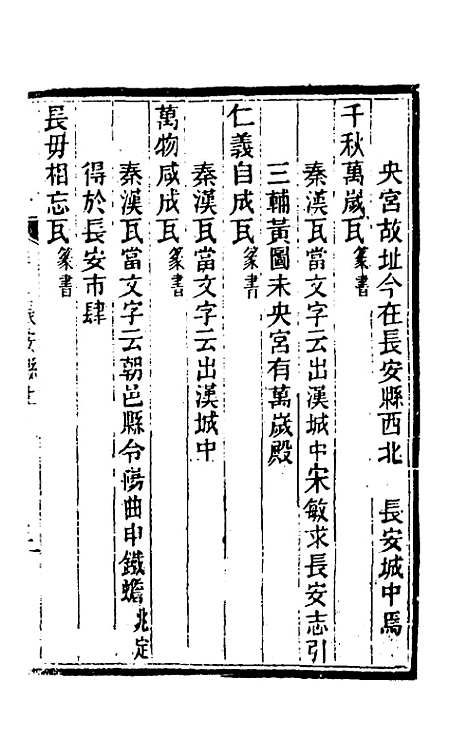 央宮故址今在長安縣西北　長安城中焉
千秋萬歲瓦篆書
秦漢瓦當文字云出漢城中宋敏求長安志引
三輔黃圖未央宮有萬歲殿
仁義自成瓦篆書
秦漢瓦當文字云出漢城中
萬物咸成瓦篆書
秦漢瓦當文字云朝邑縣令陽曲申鐵蟾兆定
得於長安市肆
長毋相忘瓦篆書
長安縣